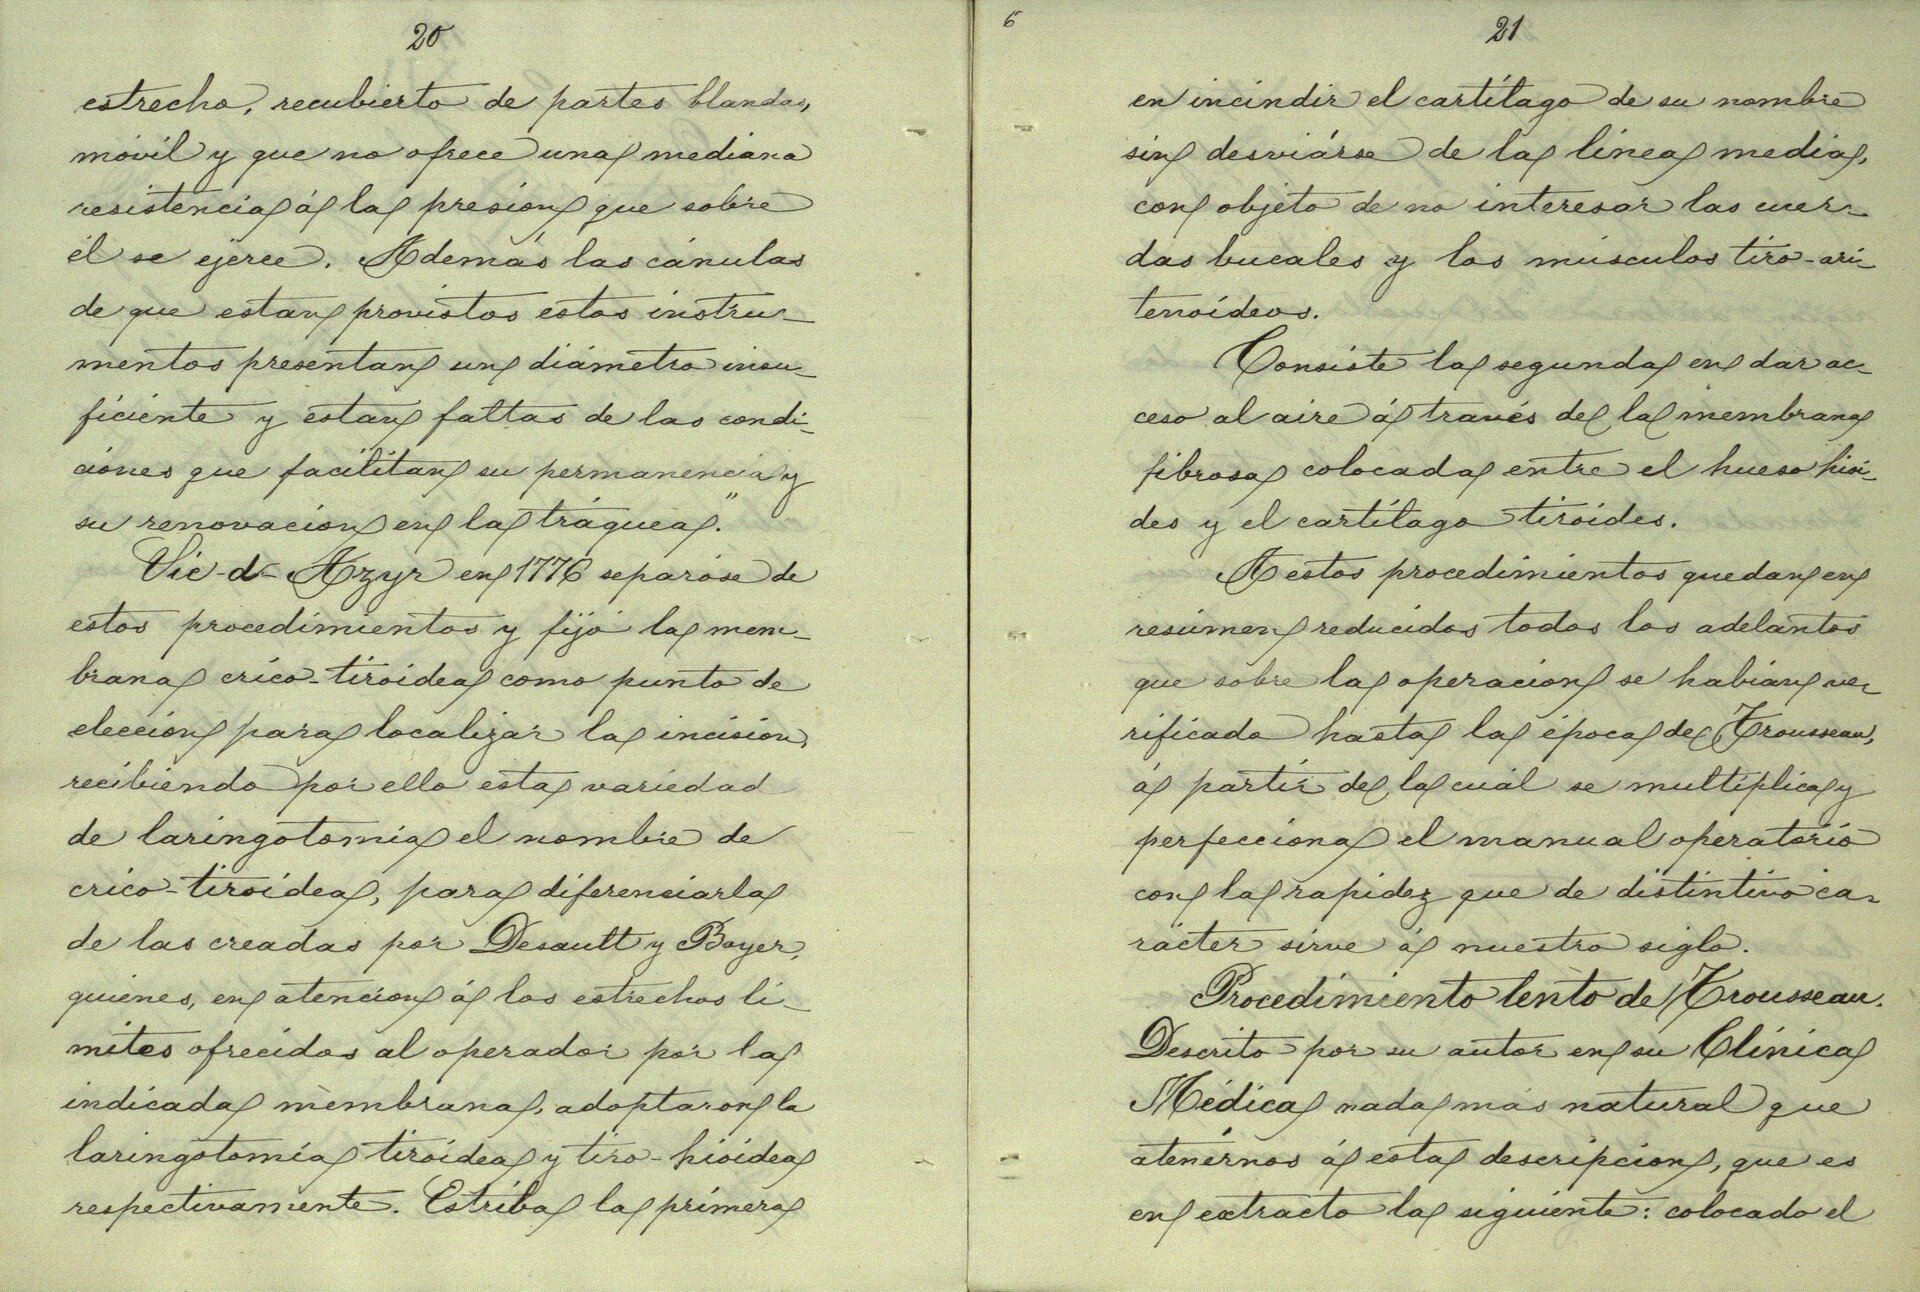 20
estrecho, recubierto de partes blandas,
móvil y que no ofrece una mediana
resistencia á la presion que sobre
él se ejerce. Además las cánulas
de que estan provistos estos instru-
mentos presentan un diámetro insu-
ficiente y estan faltas de las condi-
ciones que facilitan su permanencia y
su renovacion en la tráquea."
Vic-d-Azyr en 1776 separóse de
estos procedimientos y fijó la mem-
brana crico-tiroidea como punto de
eleccion para localizar la incision,
recibiendo por ello esta variedad
de laringotomia el nombre de
crico-tiroidea, para diferenciarla
de las creadas por Desault y Boyer,
quienes, en atencion á los estrechos li-
mites ofrecidos al operador por la
indicada membrana, adoptaron la
laringotomía tiroidea y tiro-hioidea
respectivamente. Estriba la primera
6
21
en incindir el cartílago de su nombre
sin desviárse de la línea media,
con objeto de no interesar las cuer-
das bucales y los músculos tiro-ari-
tenoídeos.
Consiste la segunda en dar ac-
ceso al aire á través de la membrana
fibrosa colocada entre el hueso hioi-
des y el cartílago tiroides.
A estos procedimientos quedan en
resúmen reducidos todos los adelantos
que sobre la operacion se habian ve-
rificado hasta la época de Trousseau,
á partir de la cuál se multiplica y
perfecciona el manual operatorio
con la rapidez que de distintivo ca-
rácter sirve á nuestro siglo.
Procedimiento lento de Trousseau.
Descrito por su autor en su Clínica
Médica nada más natural que
atenérnos á esta descripcion, que es
en extracto la siguiente: colocado el